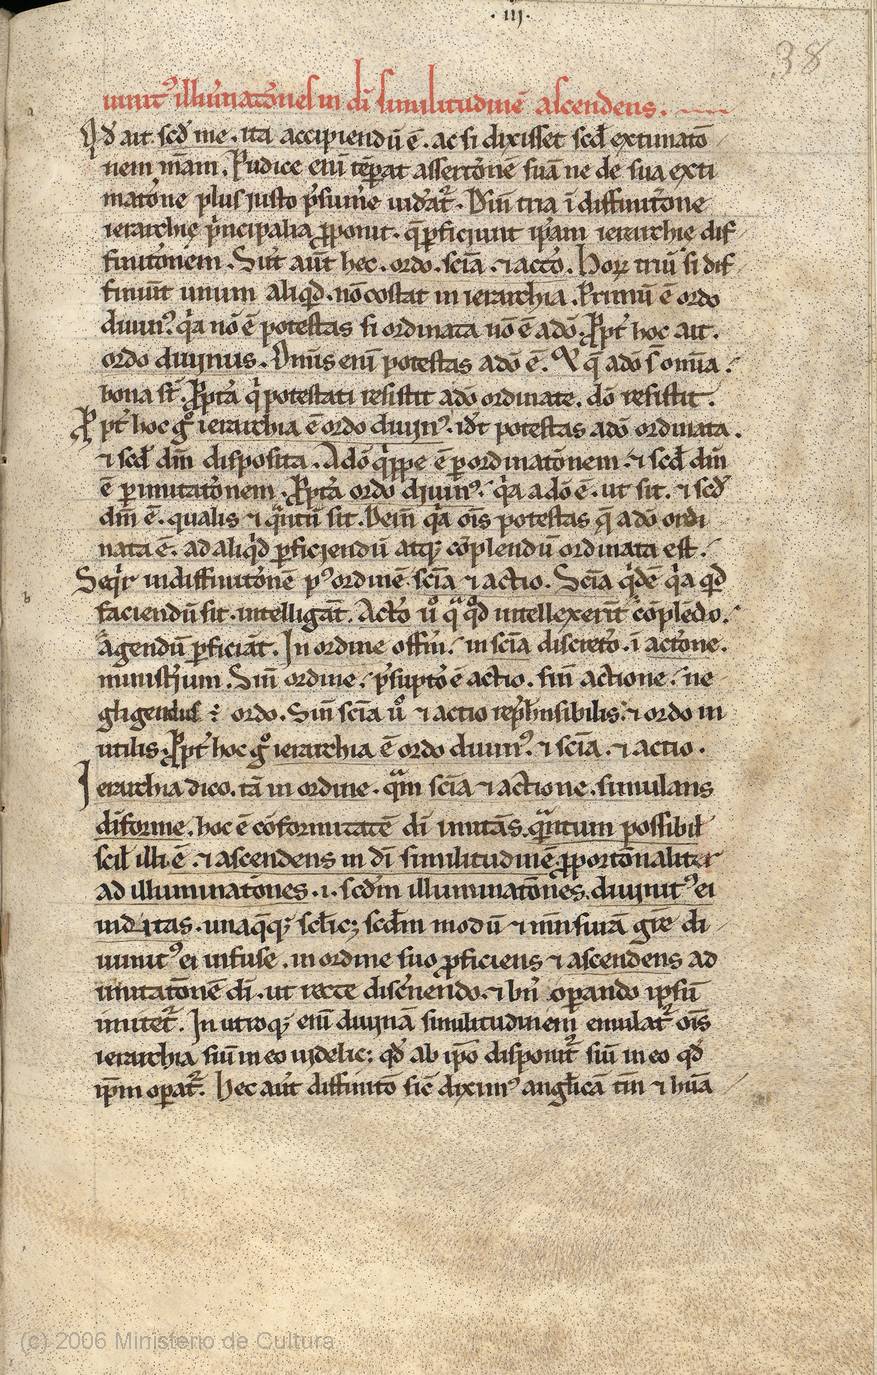 .iij.
38
uinit᷒ illuminatōnes in dī similitudinē ascendens.
Qd̄ ait. scd̄ me. ita accipiendū ē. ac si dixisset scd̄ extimatō
nem mām. Prudice eni᷒ tēperat assertōnē suā ne de sua exti
matōne plus iusto p̄sumˀe uidˀat᷑. Dein̄ tria ī diffinitōne
ierarchię p̄ncipalia ꝓponit. q̄ ꝑficiunt ipˀam ierarchię dif
finitōnem. Sūt aūt hec. ordo. scīa. ⁊ actō. Hoꝝ triū si dif
finiūt unum aliqd̄. nō cōstat in ierarchia. Primū ē ordo
diuin᷒. q̄a nō ē potestas si ordinata nō ē a dō. Ꝓpt̄ hoc ait.
ordo diuinus. Om̄is eni᷒ potestas a dō ē. ⁊ q̄ a dō s̄ om̄ia
bona s̄t. Ꝓpt̄a q̄ potestati resistit a dō ordinate. dō resistit.
Ꝓpt̄ hoc gͦ ierarchia ē ordo diuin᷒. id̄ potestas a dō ordinata.
⁊ scd̄ dm̄ disposita. A dō q̄ppe ē ꝑ ordinatōnem. ⁊ scd̄ dm̄
ē ꝑ imitatōnem. Ꝓpt̄a ordo diuin᷒. q̄a a dō ē. ut sit. ⁊ scd̄
dm̄ ē. qualis ⁊ q̄ntū sit. Dein̄ q̄a ois̄ potestas q̄ a dō ordi
nata ē. ad aliqd̄ ꝑficiendū atqꝫ cōplendū ordinata est.
Seqˀr̄ in diffinitōnē p᷒ ordinē. scīa ⁊ actio. Scīa qˀdē q̄a qd̄
faciendū sit. intelligāt. Actō uͦ qͣ qd̄ intellexerīt cōplēdo.
agendū ꝑficiāt. In ordine offm̄. in scīa discretō. ī actōne.
ministˀium. Sin̄ ordine. p̄sūptō ē actio. sin̄ actione. ne
gligendus ÷ ordo. Sin̄ scīa uͦ ⁊ actio rep̄hˀnsibilis. ⁊ ordo in
utilis. Ꝓpt̄ hoc gͦ ierarchia ē ordo diuin᷒. ⁊ scīa. ⁊ actio.
Ierarchia dico. tā in ordine. qͣm scīa ⁊ actione. similans
diforme. hoc ē cōformitatē dī imitās. qͣntum possibil̄
scil̄ illi ē ⁊ ascendens in dī similitudinē ꝓportōnaliter
ad illuminatōnes .i. scd̄m illuminatōnes. diuinit᷒ ei
inditas. unaq̄qꝫ scl̄icꝫ scd̄m modū ⁊ mn̄surā grē di
uinit᷒ ei infuse. in ordine suo ꝓficiens ⁊ ascendens ad
imitatōnē dī. ut recte discˀnendo. ⁊ bn̄ operando ipsū
imitet᷑. In utroqꝫ eni᷒ diuinā similitudinem emulat᷑ ois̄
ierarchia siū in eo uidelicꝫ qd̄ ab ipō disponit᷑ siū in eo qd̄
ip̄m opat᷑. Hec aūt diffinitō sic̄ dixim᷒ angl̄icā tm̄ ⁊ huā
b
(c) 2006 Ministerio de Cultura